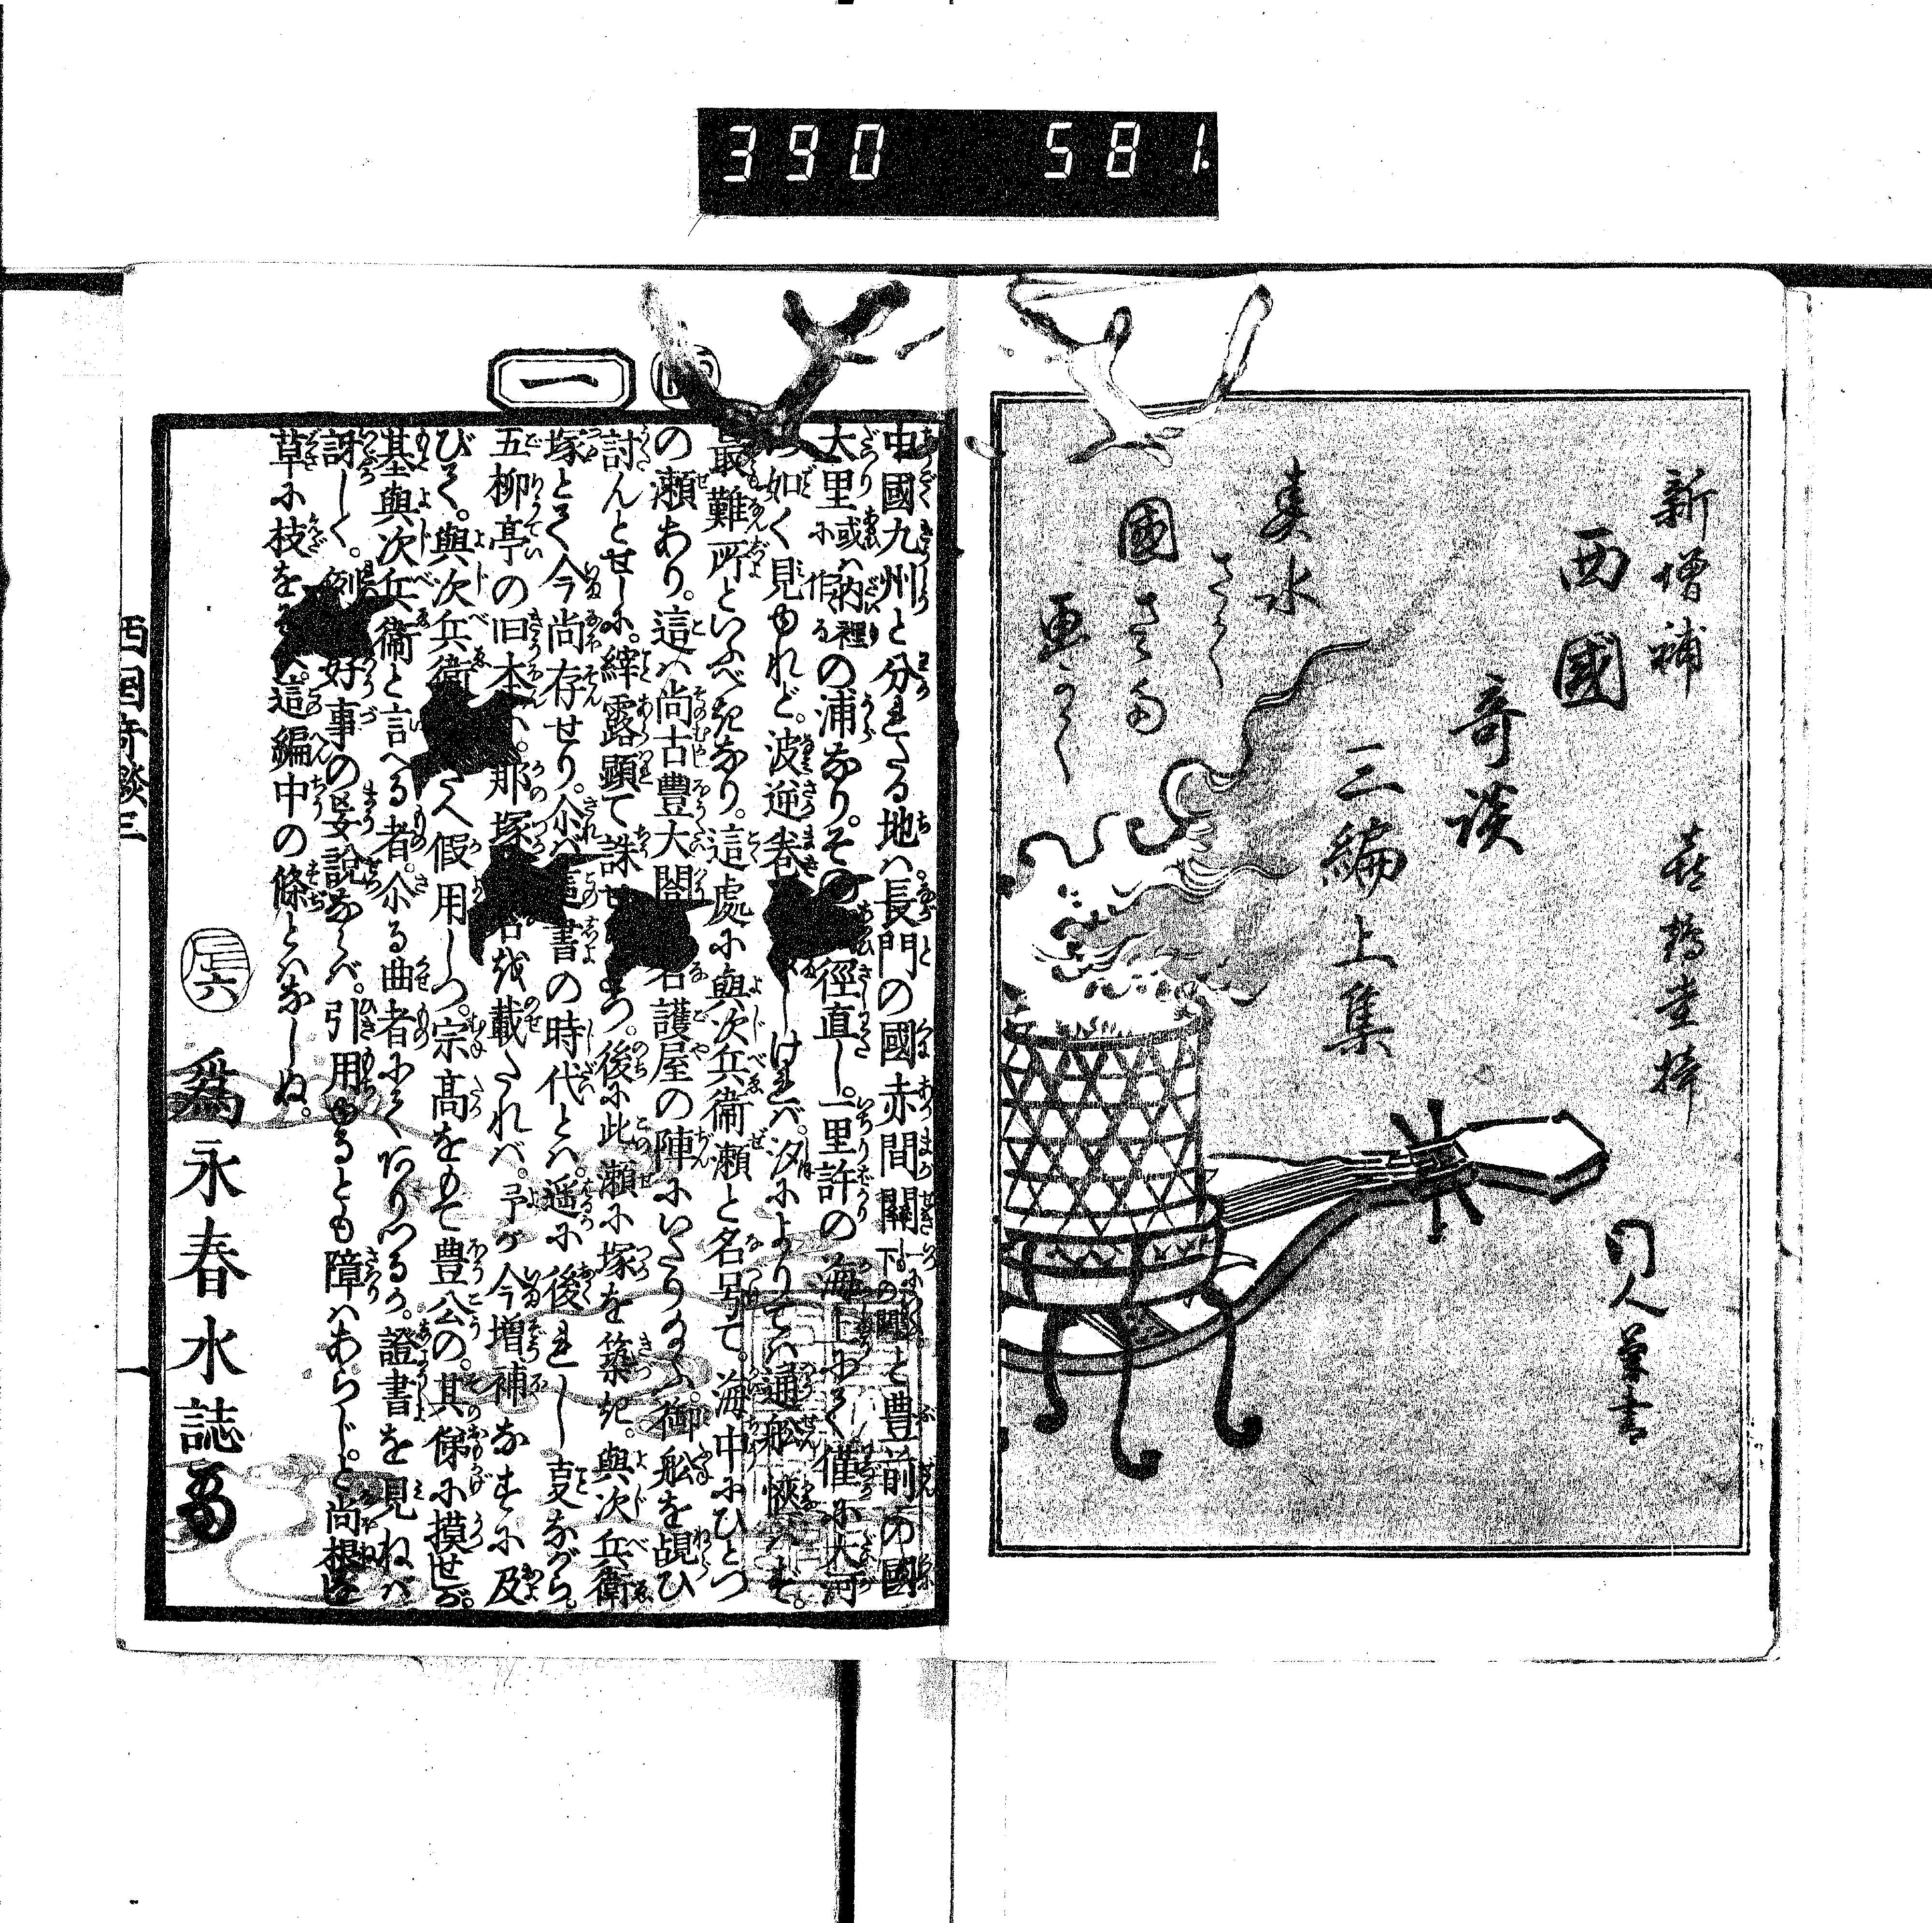 390 581
新増補
西國
奇談
三編上集
喜鶴堂梓
門人
春水
さく
國さだ
画かく
一
中國九州と分れたる地ハ。長門の國赤間關下の關と豊前の國
大里或ハ内裡に作るの浦なり。その徑直し。一里許の海上にて僅に大河
の如く見ゆれど。波逆巻しけれバ。汐によりてハ通船
最難所といふべきなり。這處に與次兵衞瀬と名号て。海中にひとつ
の瀬あり。這ハ尚古豊大閤名護屋の陣にいたり給ふ。御舩を覘ひ
討んとせしに。縡露顕て誅せ つ。後に此瀬に塚を築き。與次兵衛
塚とて今尚存せり。尒バ這書の時代とハ。遥に後れし叓ながら。
五柳亭の旧本に。那塚 名を載たれバ。予が今増補なすに及
びて。與次兵衛 さへ假用しつ。宗高をもて豊公の。其俤に摸せしが。
基與次兵衞と言へる者。尒る曲者にてありつるか。證書を見ねバ
訝しく。例 好事の妄説なるべバ。引用ゆるとも障ハあらじ。と尚根
草に枝を 這編中の條とハなしぬ。
爲永春水誌
西國奇談三